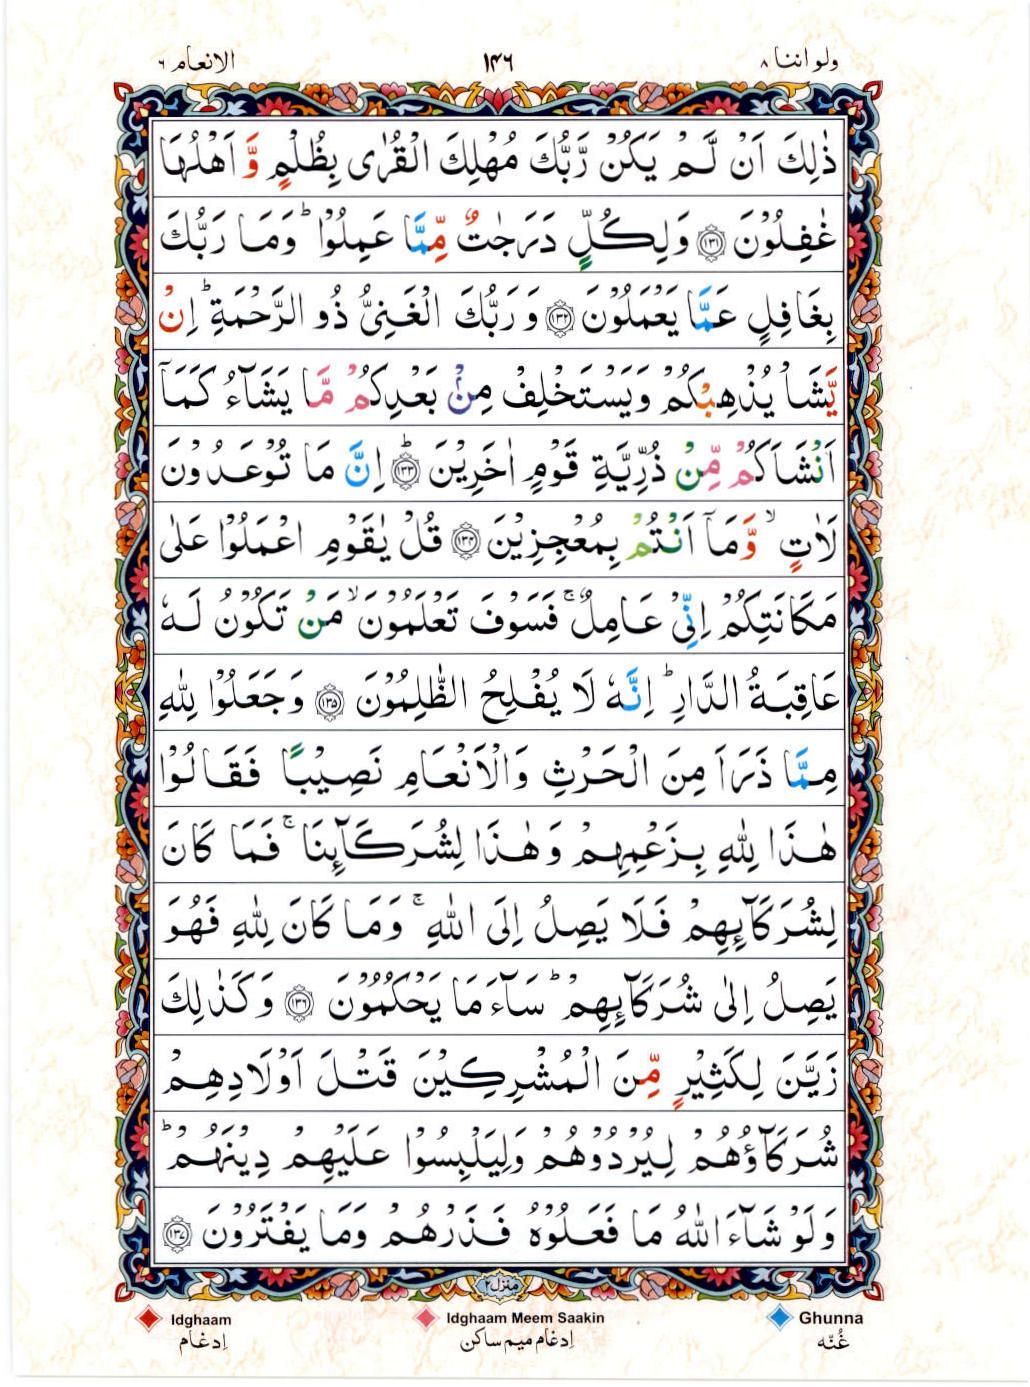 ولو اننا ٨ ١٤٦ الانعام ٦
ذٰلِكَ اَنْ لَّمْ يَكُنْ رَّبُّكَ مُهْلِكَ الْقُرٰى بِظُلْمٍ وَّ اَهْلُهَا
غٰفِلُوْنَ ﴿١٣١﴾ وَلِكُلٍّ دَرَجٰتٌ مِّمَّا عَمِلُوْا ؕ وَمَا رَبُّكَ
بِغَافِلٍ عَمَّا يَعْمَلُوْنَ ﴿١٣٢﴾ وَ رَبُّكَ الْغَنِىُّ ذُو الرَّحْمَةِ ؕ اِنْ
يَّشَاْ يُذْهِبْكُمْ وَيَسْتَخْلِفْ مِنْۢ بَعْدِكُمْ مَّا يَشَآءُ كَمَاۤ
اَنْشَاَكُمْ مِّنْ ذُرِّيَّةِ قَوْمٍ اٰخَرِيْنَ ﴿١٣٣﴾ؕ اِنَّ مَا تُوْعَدُوْنَ
لَاٰتٍ ۙ وَّمَاۤ اَنْتُمْ بِمُعْجِزِيْنَ ﴿١٣٤﴾ قُلْ يٰقَوْمِ اعْمَلُوْا عَلٰى
مَكَانَتِكُمْ اِنِّىْ عَامِلٌ ۚ فَسَوْفَ تَعْلَمُوْنَ ۙ مَنْ تَكُوْنُ لَهٗ
عَاقِبَةُ الدَّارِ ؕ اِنَّهٗ لَا يُفْلِحُ الظّٰلِمُوْنَ ﴿١٣٥﴾ وَجَعَلُوْا لِلّٰهِ
مِمَّا ذَرَاَ مِنَ الْحَرْثِ وَالْاَنْعَامِ نَصِيْبًا فَقَالُوْا
هٰذَا لِلّٰهِ بِزَعْمِهِمْ وَهٰذَا لِشُرَكَآئِنَا ۚ فَمَا كَانَ
لِشُرَكَآئِهِمْ فَلَا يَصِلُ اِلَى اللّٰهِ ۚ وَمَا كَانَ لِلّٰهِ فَهُوَ
يَصِلُ اِلٰى شُرَكَآئِهِمْ ؕ سَآءَ مَا يَحْكُمُوْنَ ﴿١٣٦﴾ وَكَذٰلِكَ
زَيَّنَ لِكَثِيْرٍ مِّنَ الْمُشْرِكِيْنَ قَتْلَ اَوْلَادِهِمْ
شُرَكَآؤُهُمْ لِيُرْدُوْهُمْ وَلِيَلْبِسُوْا عَلَيْهِمْ دِيْنَهُمْ ؕ
وَلَوْ شَآءَ اللّٰهُ مَا فَعَلُوْهُ فَذَرْهُمْ وَمَا يَفْتَرُوْنَ ﴿١٣٧﴾
منزل ٢
Idghaam Idghaam Meem Saakin Ghunna
إدغام إدغام ميم ساكن غُنّه